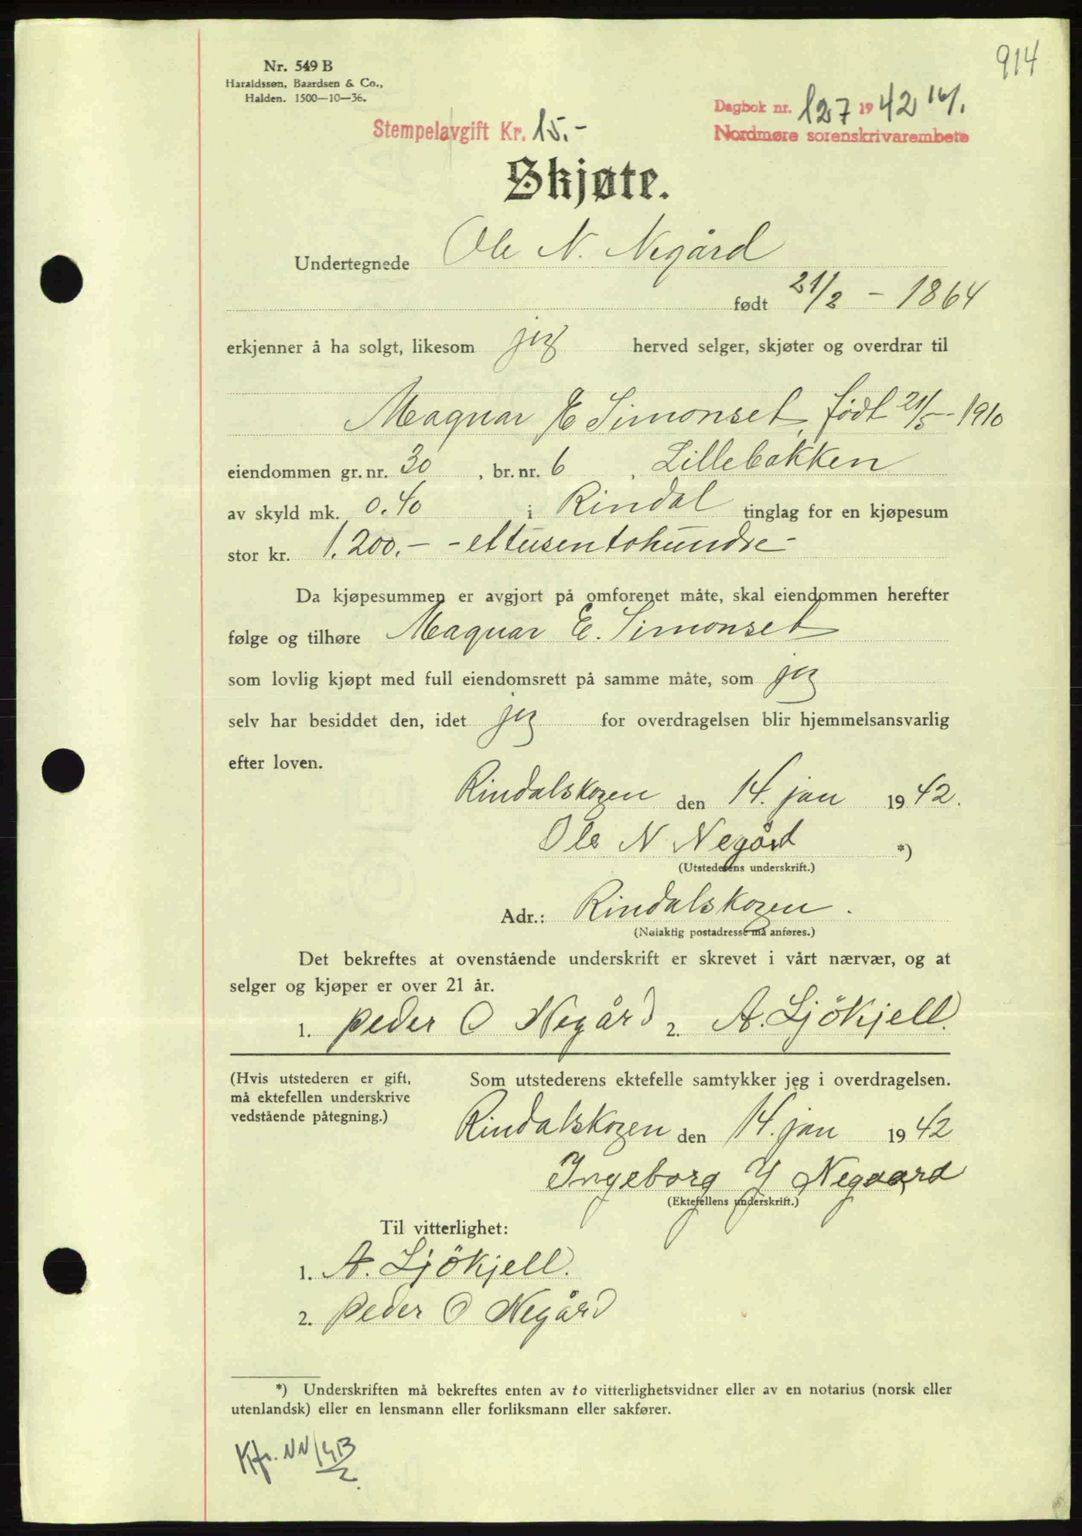 914
Nr. 549 B
Haraldssøn, Baardsen & Co.,
Halden. 1500—10—36.
Dagbok nr. 127 1942 16/1.
Nordmøre sorenskrivarembete
Stempelavgift Kr. 15.-
Skjøte.
Undertegnede Ole N. Negård
født 21/2 - 1864
erkjenner å ha solgt, likesom jeg herved selger, skjøter og overdrar til
Magnar E Simonset, født 21/5 - 1910
eiendommen gr. nr. 30, br. nr. 6, Lillebakken
av skyld mk. 0.40 i Rindal tinglag for en kjøpesum
stor kr. 1.200.- - ettusentohundre -
Da kjøpesummen er avgjort på omforenet måte, skal eiendommen herefter
følge og tilhøre Magnar E. Simonset
som lovlig kjøpt med full eiendomsrett på samme måte, som jeg
selv har besiddet den, idet jeg for overdragelsen blir hjemmelsansvarlig
efter loven.
Rindalskogen den 14. jan 1942.
Ole N Negård *)
(Utstederens underskrift.)
Adr.: Rindalskogen.
(Nøiaktig postadresse må anføres.)
Det bekreftes at ovenstående underskrift er skrevet i vårt nærvær, og at
selger og kjøper er over 21 år.
1. Peder O Negård 2. A. Ljökjell.
(Hvis utstederen er gift,
må ektefellen underskrive
vedstående påtegning.)
Som utstederens ektefelle samtykker jeg i overdragelsen.
Rindalskogen den 14. jan 1942
Ingeborg J Negaard
(Ektefellens underskrift.)
Til vitterlighet:
1. A. Ljökjell.
2. Peder O Negård
*) Underskriften må bekreftes enten av to vitterlighetsvidner eller av en notarius (norsk eller
utenlandsk) eller en lensmann eller forliksmann eller sakfører.